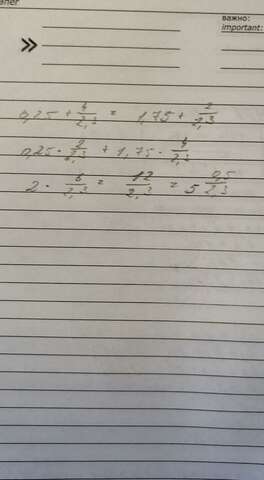 важно:
important:
0,25 + 4/2,3 = 1,75 + 2/2,3
0,25 · 2/2,3 + 1,75 · 4/2,3
2 · 6/2,3 = 12/2,3 = 5 0,5/2,3